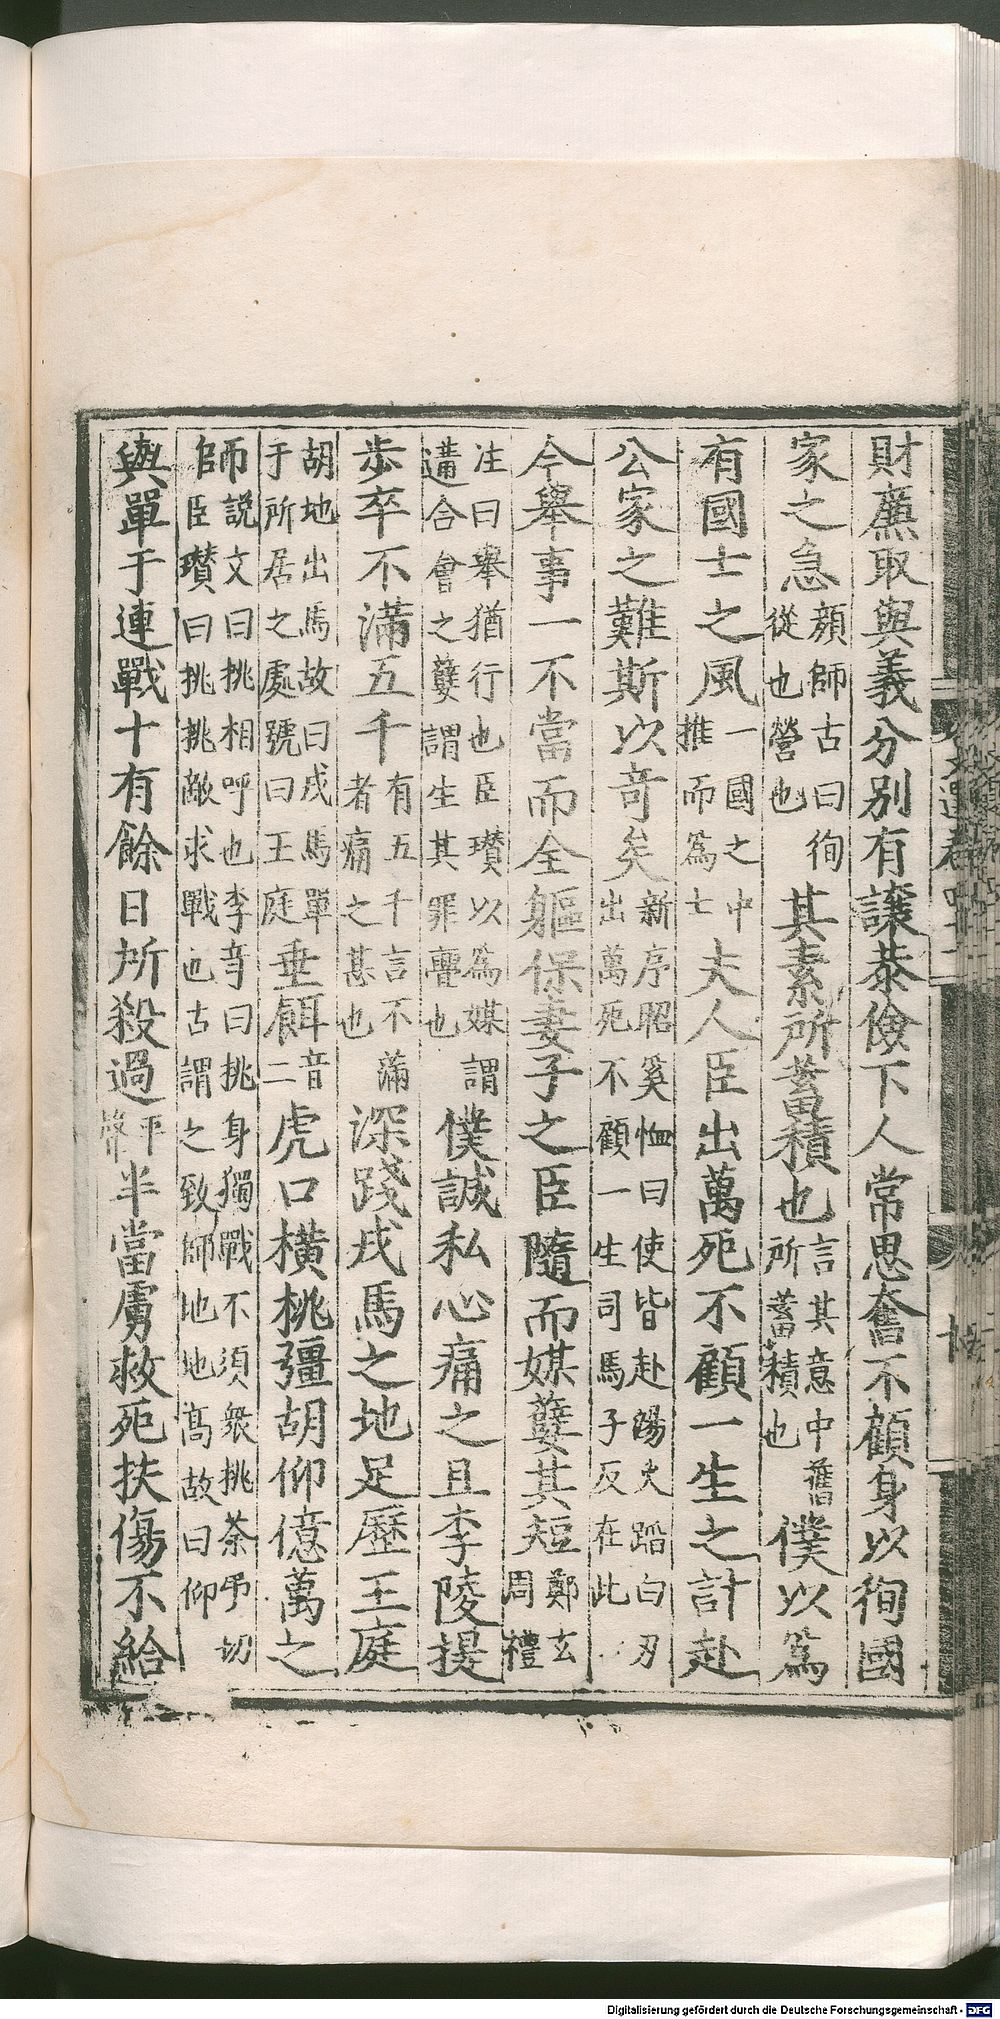 財廉取與義分別有讓恭儉下人常思奮不顧身以徇國
家之急顔師古曰徇從也營也其素所蓄積也言其意中舊所蓄積也僕以爲
有國士之風一國之中推而爲士夫人臣出萬死不顧一生之計赴
公家之難斯以竒矣新序昭奚恤曰使皆赴湯火蹈白刃出萬死不顧一生司馬子反在此
今舉事一不當而全軀保妻子之臣隨而媒孽其短鄭玄周禮
注曰舉猶行也臣瓚以爲媒謂遘合會之孽謂生其罪舋也僕誠私心痛之且李陵提
步卒不滿五千有五千言不滿者痛之甚也深踐戎馬之地足歷王庭
胡地出馬故曰戎馬單于所居之處號曰王庭垂餌音二虎口橫挑彊胡仰億萬之
師說文曰挑相呼也李竒曰挑身獨戰不須衆挑荼弔切師臣瓚曰挑挑敵求戰也古謂之致師地地髙故曰仰
與單于連戰十有餘日所殺過平聲半當虜救死扶傷不給
Digitalisierung gefördert durch die Deutsche Forschungsgemeinschaft - DFG